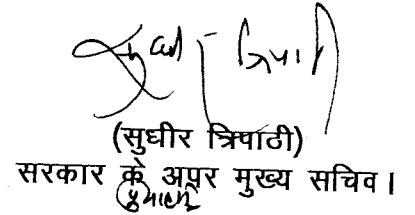 (सुधीर त्रिपाठी)
सरकार के अपर मुख्य सचिव।